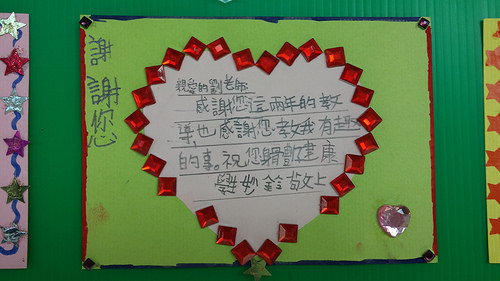 謝謝您
親愛的劉老師:
感謝您這兩年的教
導,也感謝您教我有趣
的事。祝您身體健康
劉妙鈴敬上